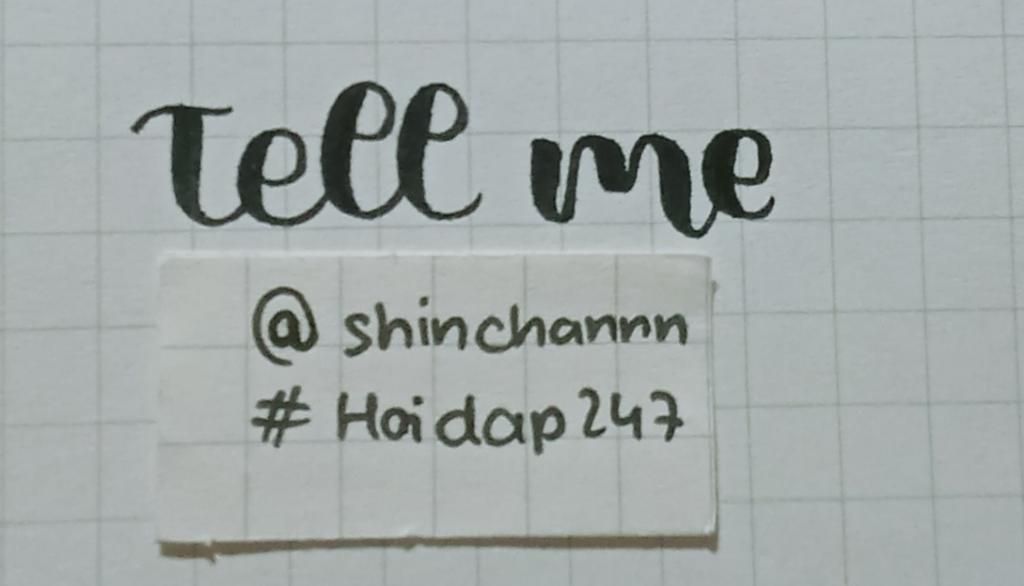 Tell me
@ shinchannn
# Hoidap247